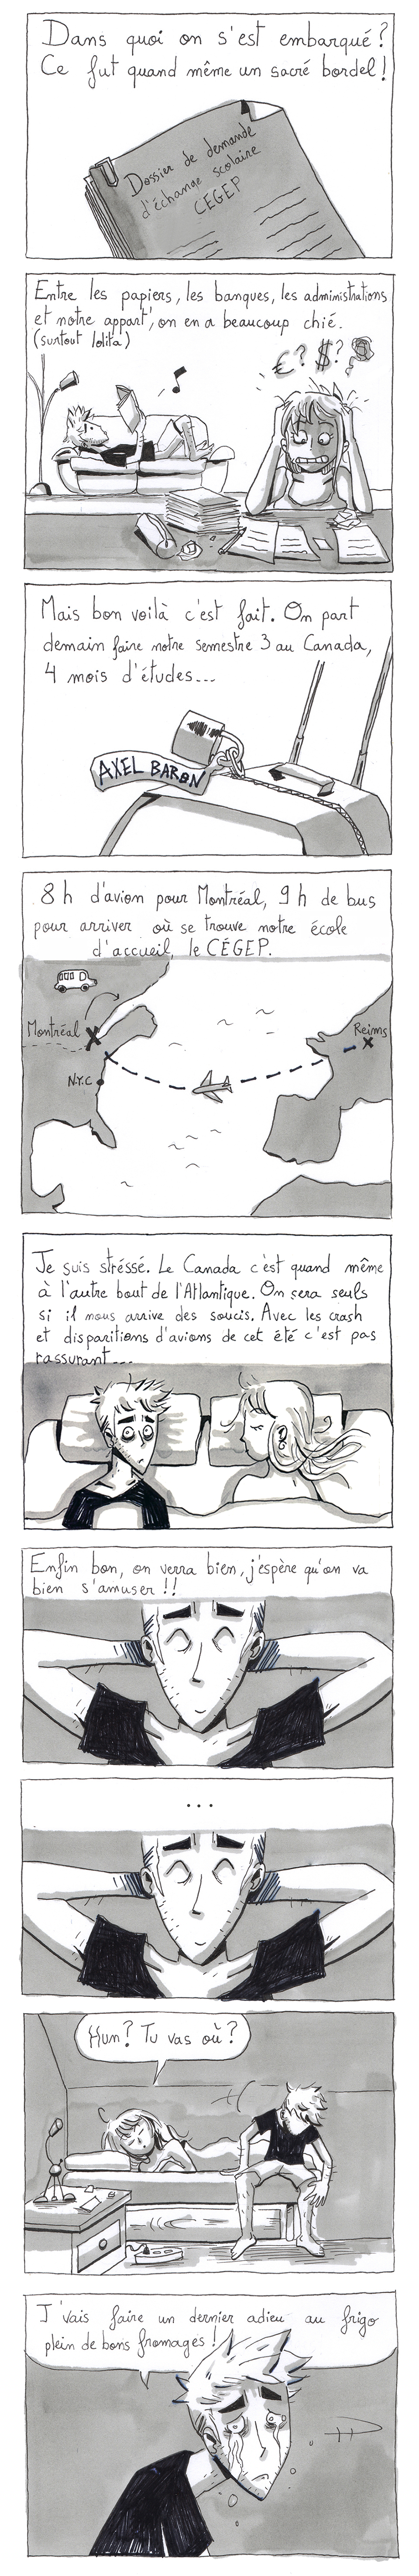 Dans quoi on s'est embarqué?
Ce fut quand même un sacré bordel!
Dossier de demande
d'échange scolaire
CEGEP
Entre les papiers, les banques, les administrations
et notre appart', on en a beaucoup chié.
(surtout lolita)
€? $?
Mais bon voilà c'est fait. On part
demain faire notre semestre 3 au Canada,
4 mois d'études...
AXEL BARON
8 h d'avion pour Montréal, 9 h de bus
pour arriver où se trouve notre école
d'accueil, le CÉGEP.
Montréal
Reims
N.Y.C
Je suis stréssé. Le Canada c'est quand même
à l'autre bout de l'Atlantique. On sera seuls
si il nous arrive des soucis. Avec les crash
et disparitions d'avions de cet été c'est pas
rassurant...
Enfin bon, on verra bien, j'espère qu'on va
bien s'amuser!!
...
Hun? Tu vas où?
J'vais faire un dernier adieu au frigo
plein de bons fromages!